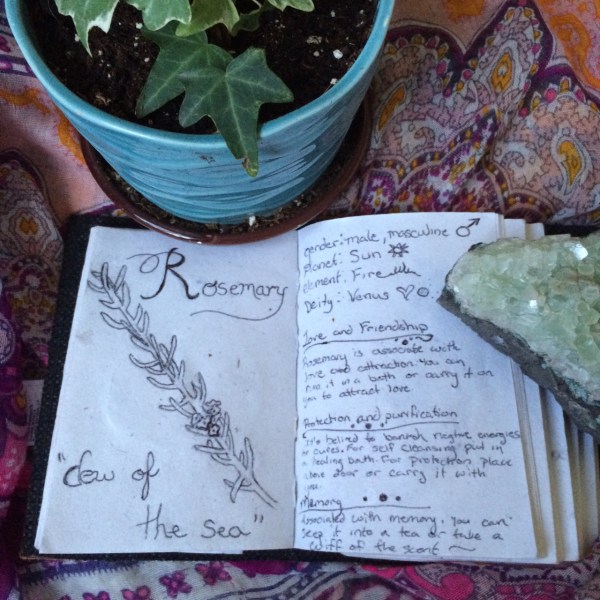 Rosemary
"dew of
the sea"
gender: male, masculine ♂
planet: Sun
element: Fire
Deity: Venus ♡
Love and Friendship
Rosemary is associate with
love and attraction. You can
run it in a bath or carry it on
you to attract love
Protection and purification
It's belived to banish negtive energies
or curses. For self cleansing put in
a healing bath. For protection place
above door or carry it with
you.
Memory
Associated with memory. You can
seep it into a tea or take a
sniff of the scent ~